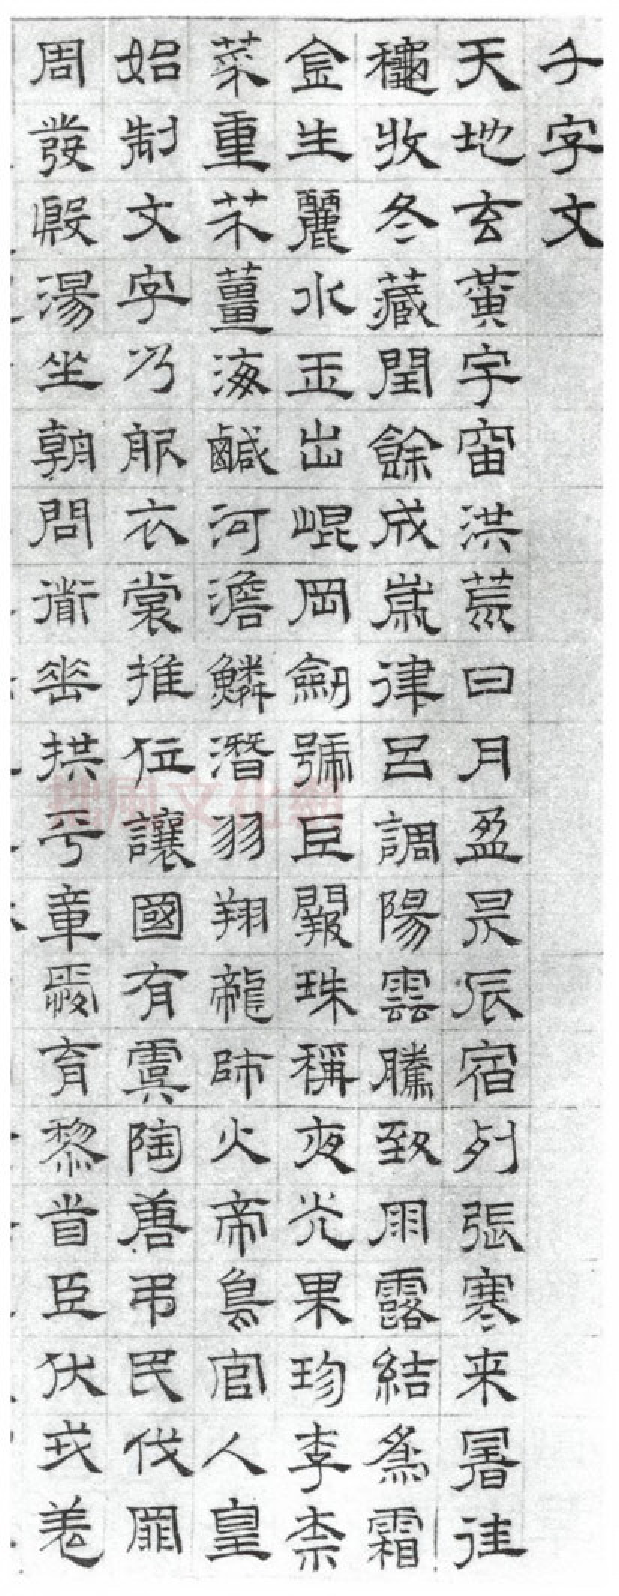 千字文
天地玄黃宇宙洪荒日月盈昃辰宿列張寒来暑往
穐收冬藏閏餘成歲律呂調陽雲騰致雨露結為霜
金生麗水玉出崐岡劒號巨闕珠稱夜光果珍李柰
菜重芥薑海鹹河澹鱗潛羽翔龍師火帝鳥官人皇
始制文字乃服衣裳推位讓國有虞陶唐弔民伐罪
周發殷湯坐朝問道垂拱平章愛育黎首臣伏戎羌
拙風文化網